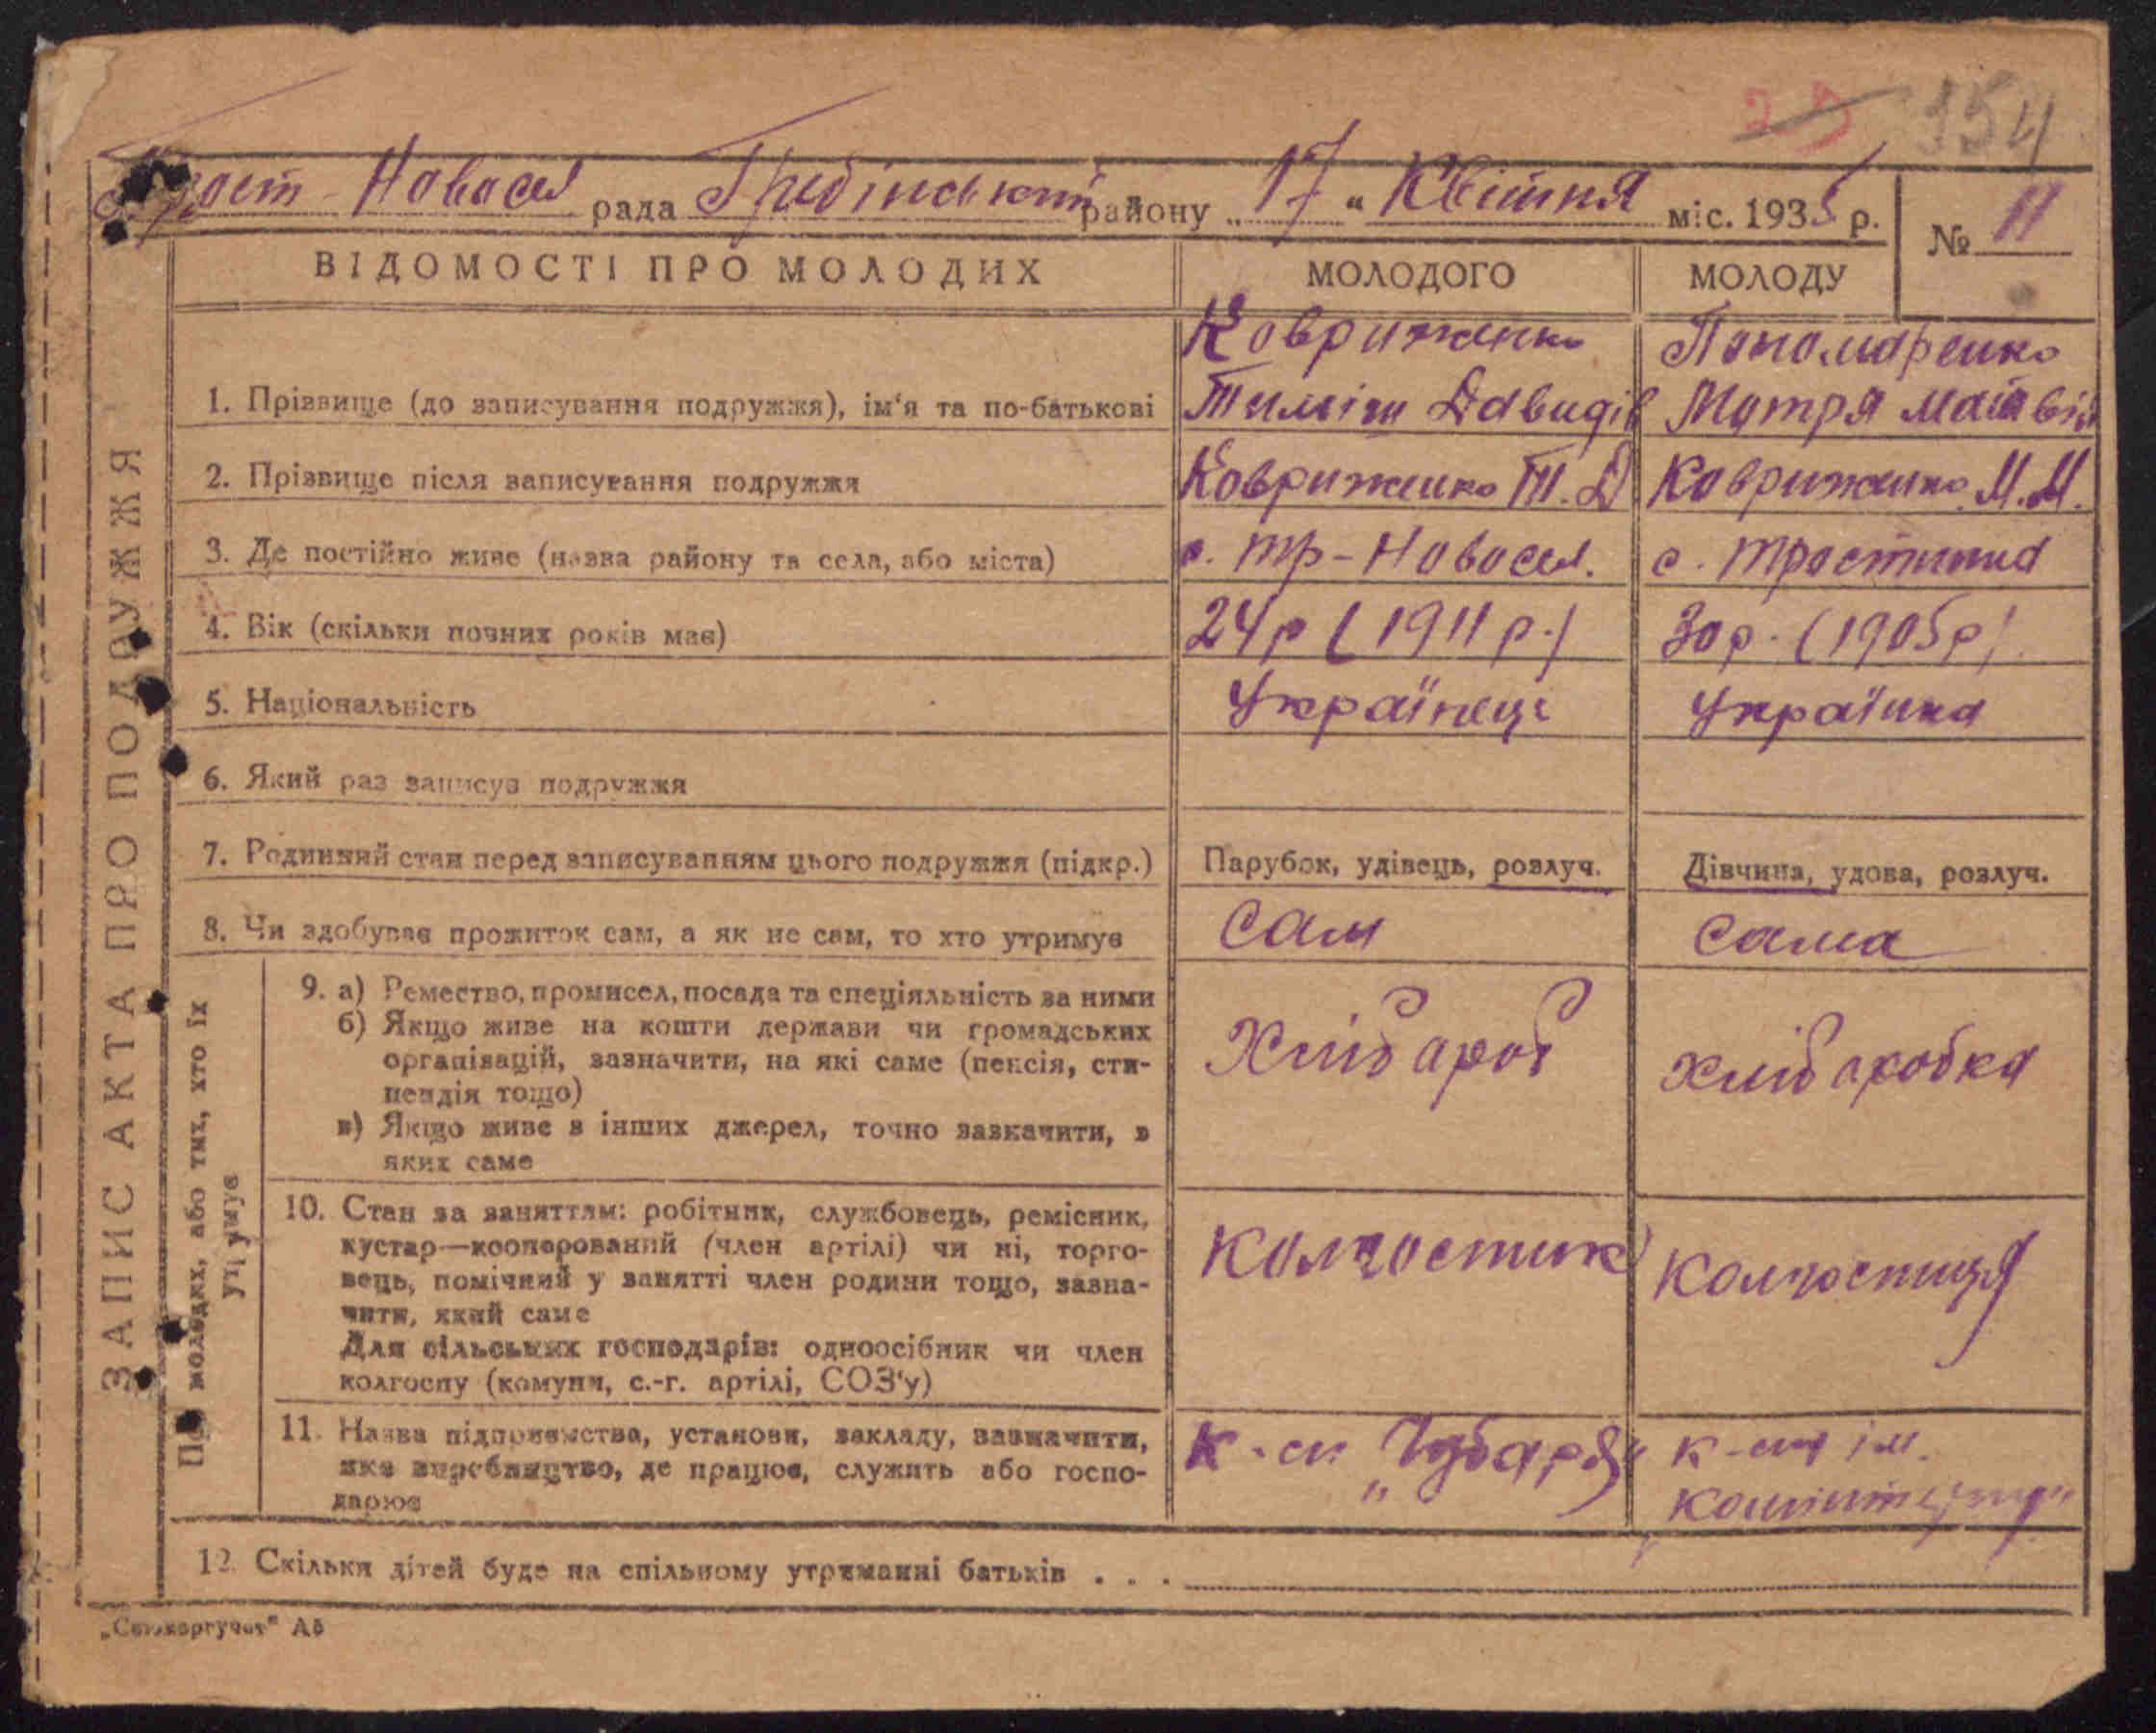 25 154
Трост-Новосел рада Гребінський району „17" Квітня міс. 1935 р.
№ 11
ВІДОМОСТІ ПРО МОЛОДИХ МОЛОДОГО МОЛОДУ
Ковриженко Пономаренко
1. Прізвище (до записування подружжя), ім'я та по-батькові Тиміш Давидів Мотря Матвіїв
2. Прізвище після записування подружжя Ковриженко Т. Д Ковриженко М. М.
3. Де постійно живе (назва району та села, або міста) с. Тр-Новосел. с. Тростинка
4. Вік (скільки повних років має) 24р (1911 р.) 30 р. (1905р).
5. Національність Українець Українка
6. Який раз записує подружжя
7. Родинний стан перед записуванням цього подружжя (підкр.) Парубок, удівець, розлуч. Дівчина, удова, розлуч.
8. Чи здобуває прожиток сам, а як не сам, то хто утримує сам сама
9. а) Ремество, промисел, посада та спеціяльність за ними
б) Якщо живе на кошти держави чи громадських
організацій, зазначити, на які саме (пенсія, сти-
пендія тощо)
в) Якщо живе з інших джерел, точно зазначити, з
яких саме
Хлібароб хлібаробка
10. Стан за заняттям: робітник, службовець, ремісник,
кустар—кооперований (член артілі) чи ні, торго-
вець, помічний у занятті член родини тощо, зазна-
чити, який саме
Для сільських господарів: одноосібник чи член
колгоспу (комуни, с.-г. артілі, СОЗ'у)
Колгостик Колгостиця
11. Назва підприємства, установи, закладу, зазначити,
яке виробництво, де працює, служить або госпо-
дарює
к-сп „Чубаря" к-сп ім.
12. Скільки дітей буде на спільному утриманні батьків . . .
ЗАПИС АКТА ПРО ПОДРУЖЖЯ
Про молодих, або тих, хто їх
утримує